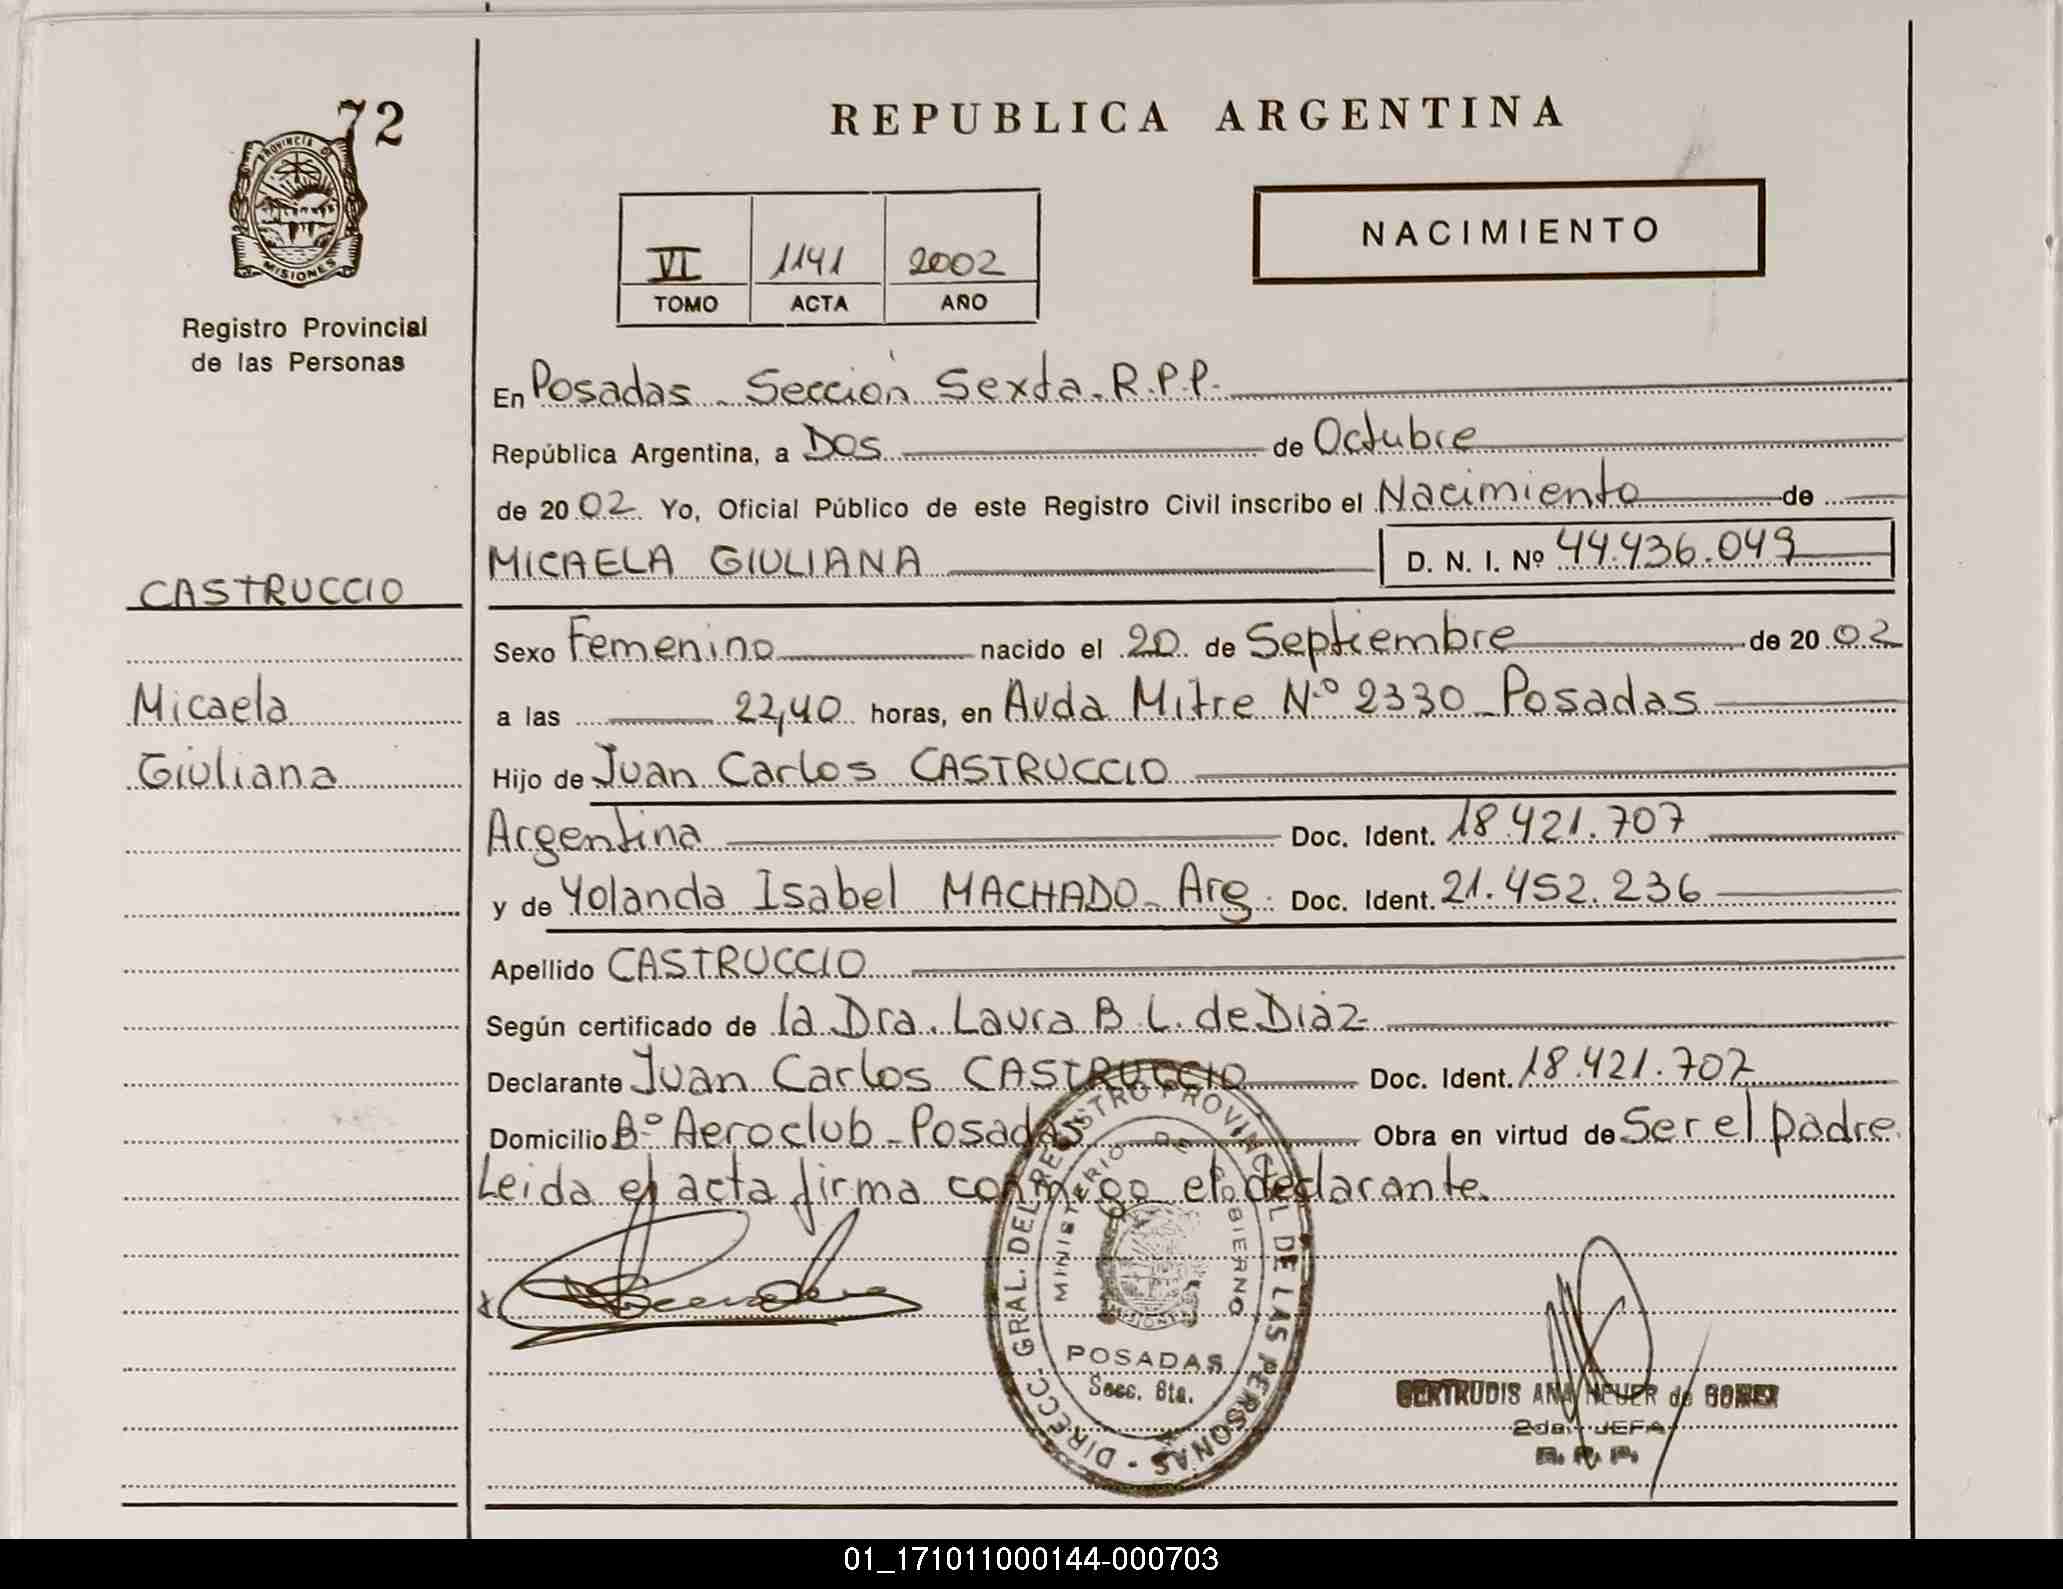 72
PROVINCIA DE
MISIONES
Registro Provincial
de las Personas
CASTRUCCIO
Micaela
Giuliana
REPUBLICA ARGENTINA
VI 1141 2002
TOMO ACTA AÑO
NACIMIENTO
En Posadas - Sección Sexta. R.P.P.
República Argentina, a Dos de Octubre
de 2002 Yo, Oficial Público de este Registro Civil inscribo el Nacimiento de
MICAELA GIULIANA D. N. I. Nº 44.436.049
Sexo Femenino nacido el 20 de Septiembre de 2002
a las 22,40 horas, en Avda Mitre N.º 2330 - Posadas
Hijo de Juan Carlos CASTRUCCIO
Argentina Doc. Ident. 18.421.707
y de Yolanda Isabel MACHADO - Arg. Doc. Ident. 21.452.236
Apellido CASTRUCCIO
Según certificado de la Dra. Laura B. L. de Díaz
Declarante Juan Carlos CASTRUCCIO Doc. Ident. 18.421.707
Domicilio Bº Aeroclub - Posadas Obra en virtud de Ser el padre
Leida el acta firma conmigo el declarante.
DIRECC. GRAL. DEL REGISTRO PROVINCIAL DE LAS PERSONAS
MINISTERIO DE GOBIERNO
POSADAS
Secc. 6ta.
GERTRUDIS ANA NEUER de GOMEZ
2da. JEFA
R. P. P.
01_171011000144-000703